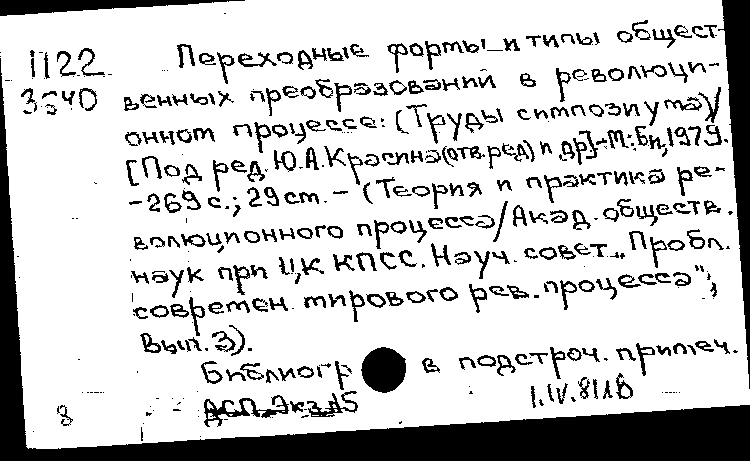 1122
3540
Переходные формы и типы общест-
венных преобразований в революци-
онном процессе: (Труды симпозиума)/
[Под ред. Ю.А.Красина (отв.ред) и др].-М.: Би, 1979.
-269 с.; 29 см. - (Теория и практика ре-
волюционного процесса/Акад. обществ.
наук при ЦК КПСС. Науч. совет „Пробл.
современ. мирового рев. процесса";
Вып. 3).
Библиогр в подстроч. примеч.
ДСП. Экз. А5
8